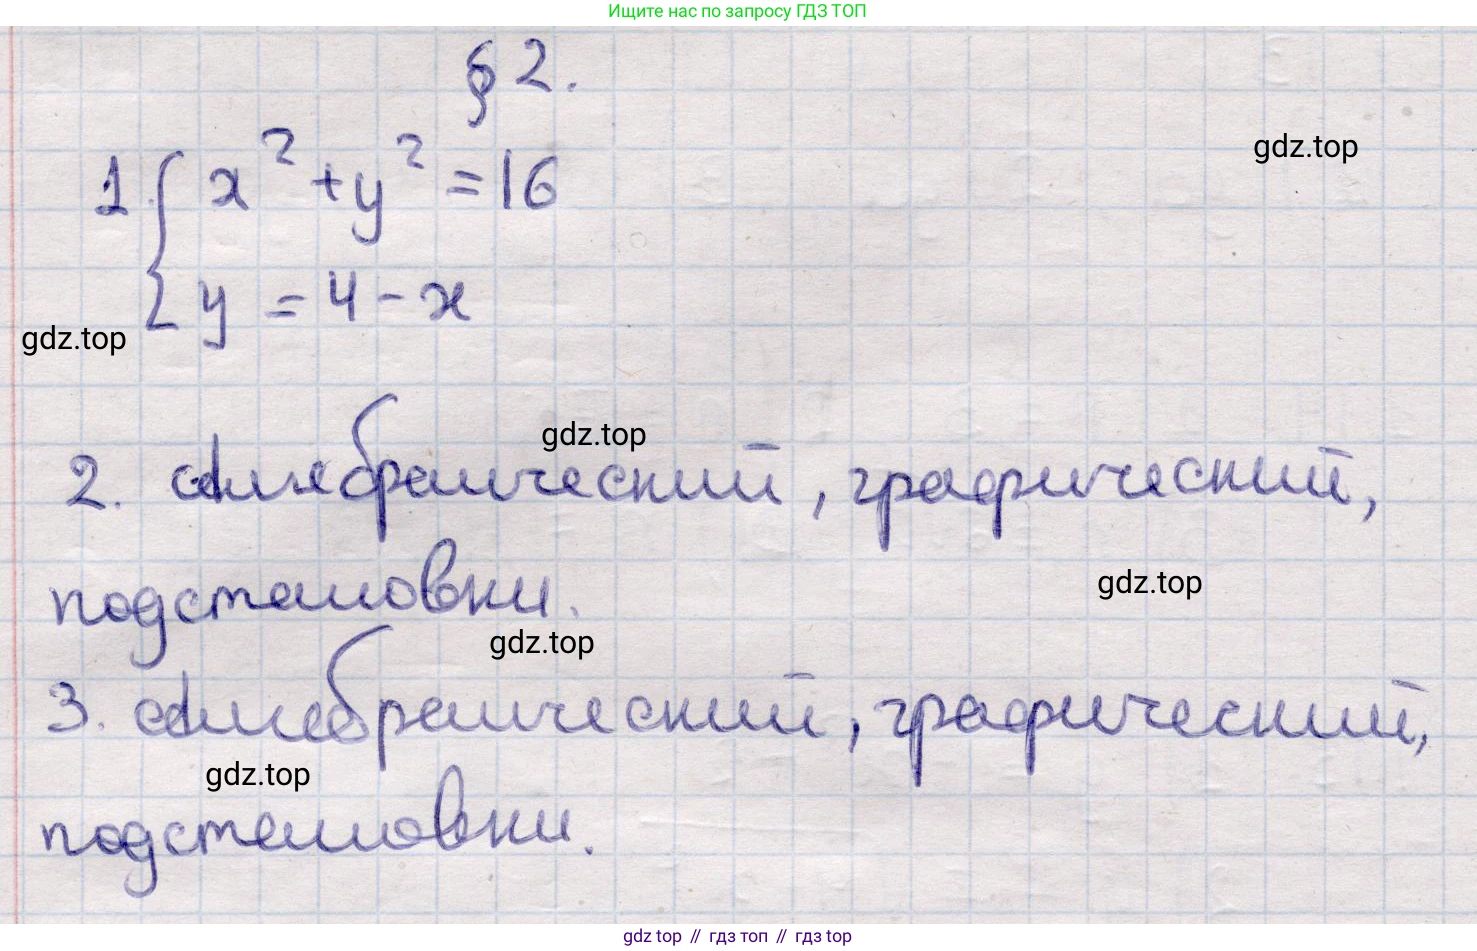 Ищите нас по запросу ГДЗ ТОП
§ 2.
gdz.top
1. { x² + y² = 16
y = 4 - x
gdz.top
gdz.top
2. алгебраический, графический,
gdz.top
подстановки.
gdz.top
3. алгебраический, графический,
gdz.top
подстановки.
gdz.top // гдз топ // гдз top